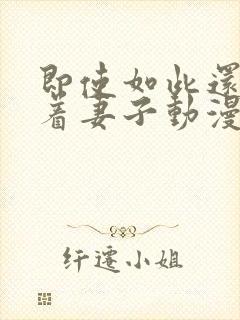 即使如此還
著妻子動漫
纤迁小姐